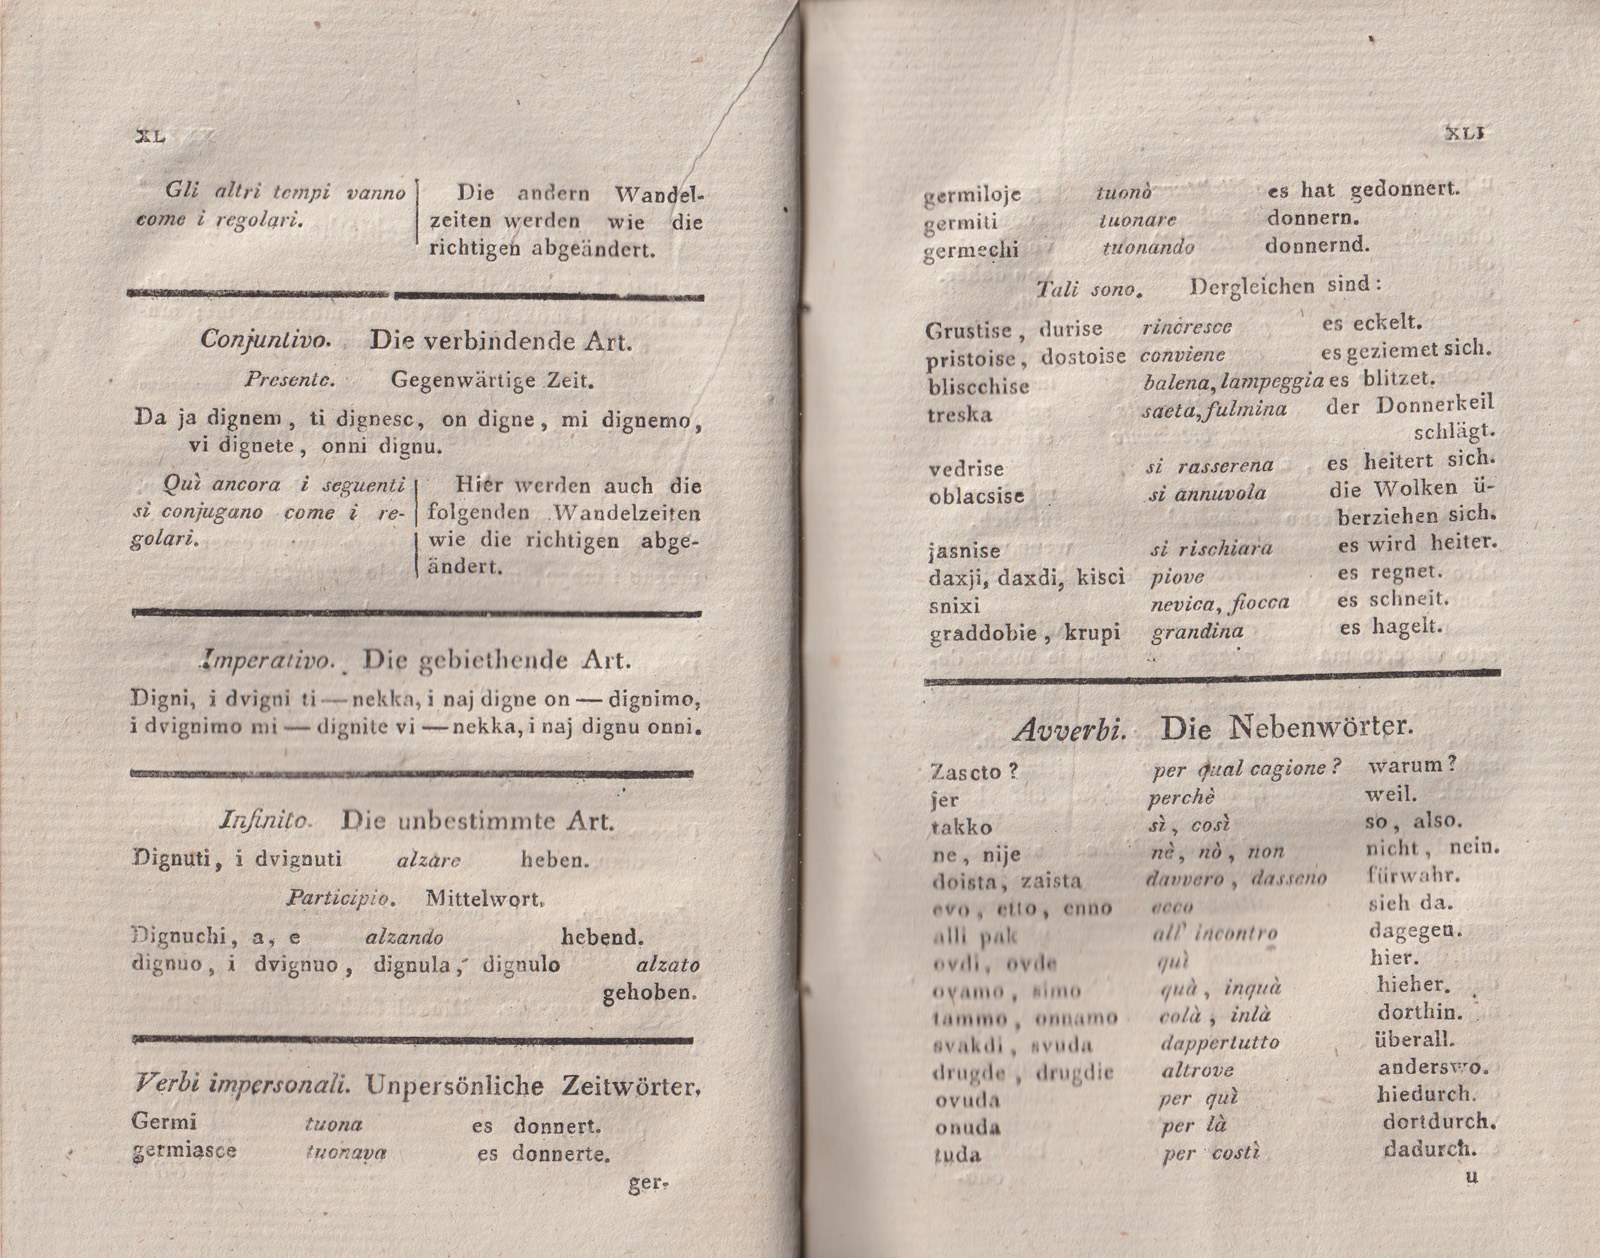 XL
Gli altri tempi vanno
come i regolari.
Die andern Wandel-
zeiten werden wie die
richtigen abgeändert.
Conjuntivo. Die verbindende Art.
Presente. Gegenwärtige Zeit.
Da ja dignem, ti dignesc, on digne, mi dignemo,
vi dignete, onni dignu.
Quì ancora i seguenti
si conjugano come i re-
golari.
Hier werden auch die
folgenden Wandelzeiten
wie die richtigen abge-
ändert.
Imperativo. Die gebiethende Art.
Digni, i dvigni ti — nekka, i naj digne on — dignimo,
i dvignimo mi — dignite vi — nekka, i naj dignu onni.
Infinito. Die unbestimmte Art.
Dignuti, i dvignuti alzare heben.
Participio. Mittelwort.
Dignuchi, a, e alzando hebend.
dignuo, i dvignuo, dignula, dignulo alzato
gehoben.
Verbi impersonali. Unpersönliche Zeitwörter.
Germi tuona es donnert.
germiasce tuonava es donnerte.
ger-
XLI
germiloje tuonò es hat gedonnert.
germiti tuonare donnern.
germechi tuonando donnernd.
Tali sono. Dergleichen sind:
Grustise, durise rincresce es eckelt.
pristoise, dostoise conviene es geziemet sich.
bliscchise balena, lampeggia es blitzet.
treska saeta, fulmina der Donnerkeil
schlägt.
vedrise si rasserena es heitert sich.
oblacsise si annuvola die Wolken ü-
berziehen sich.
jasnise si rischiara es wird heiter.
daxji, daxdi, kisci piove es regnet.
snixi nevica, fiocca es schneit.
graddobie, krupi grandina es hagelt.
Avverbi. Die Nebenwörter.
Zascto? per qual cagione? warum?
jer perchè weil.
takko sì, così so, also.
ne, nije nè, nò, non nicht, nein.
doista, zaista davvero, dasseno fürwahr.
evo, etto, enno ecco sieh da.
alli pak all' incontro dagegen.
ovdi, ovde quì hier.
ovamo, simo quà, inquà hieher.
tammo, onnamo colà, inlà dorthin.
svakdi, svuda dappertutto überall.
drugde, drugdie altrove anderswo.
ovuda per quì hiedurch.
onuda per là dortdurch.
tuda per costì dadurch.
u